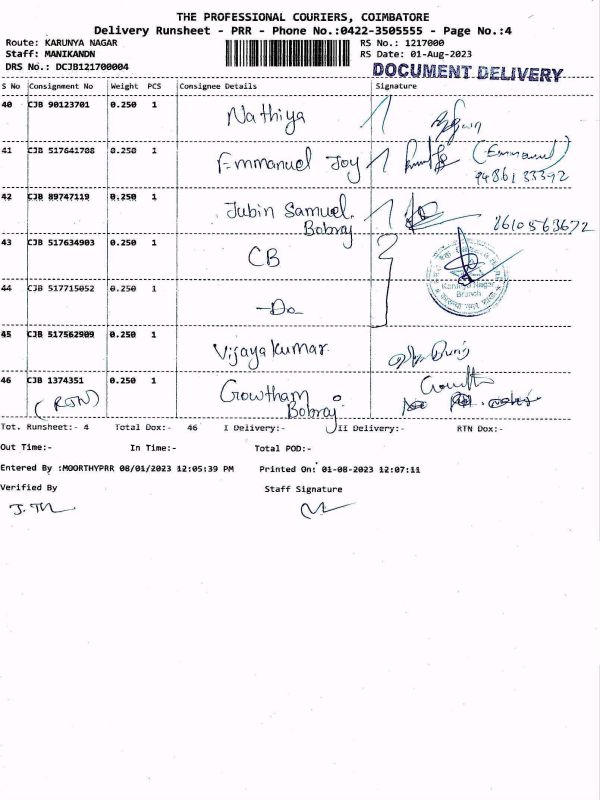 THE PROFESSIONAL COURIERS, COIMBATORE
Delivery Runsheet - PRR - Phone No.:0422-3505555 - Page No.:4
Route: KARUNYA NAGAR
RS No.: 1217000
Staff: MANIKANDN
RS Date: 01-Aug-2023
DRS No.: DCJB121700004
DOCUMENT DELIVERY
S No Consignment No Weight PCS Consignee Details Signature
40 CJB 90123701 0.250 1 Nathiya
41 CJB 517641708 0.250 1 Emmanuel Joy (Emmanuel)
9486133392
42 CJB 89747119 0.250 1 Jubin Samuel 8610563672
Bobray
43 CJB 517634903 0.250 1 CB
Karunya Nagar
Branch
44 CJB 517715052 0.250 1 -Do
45 CJB 517562909 0.250 1 Vijayakumar
46 CJB 1374351 0.250 1 Gowtham Gowtham
(RTN) Bobray
Tot. Runsheet:- 4 Total Dox:- 46 I Delivery:- II Delivery:- RTN Dox:-
Out Time:- In Time:- Total POD:-
Entered By :MOORTHYPRR 08/01/2023 12:05:39 PM Printed On: 01-08-2023 12:07:11
Verified By Staff Signature